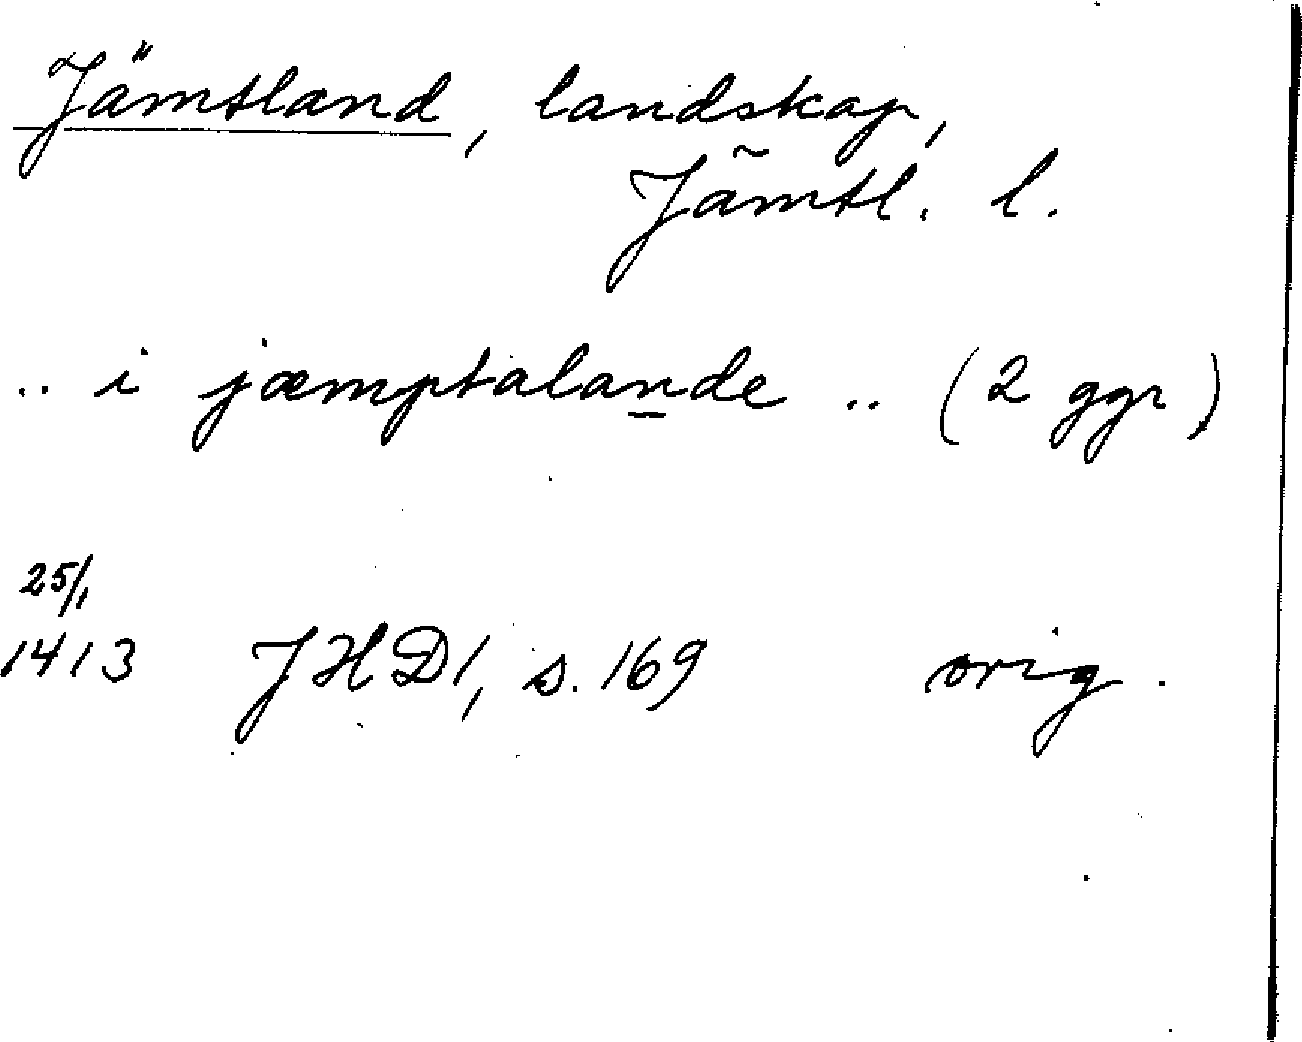 Jämtland, landskap,
Jämtl. l.
.. i jæmptalande .. (2 ggr)
25/1
1413 JHD1, s. 169 orig.